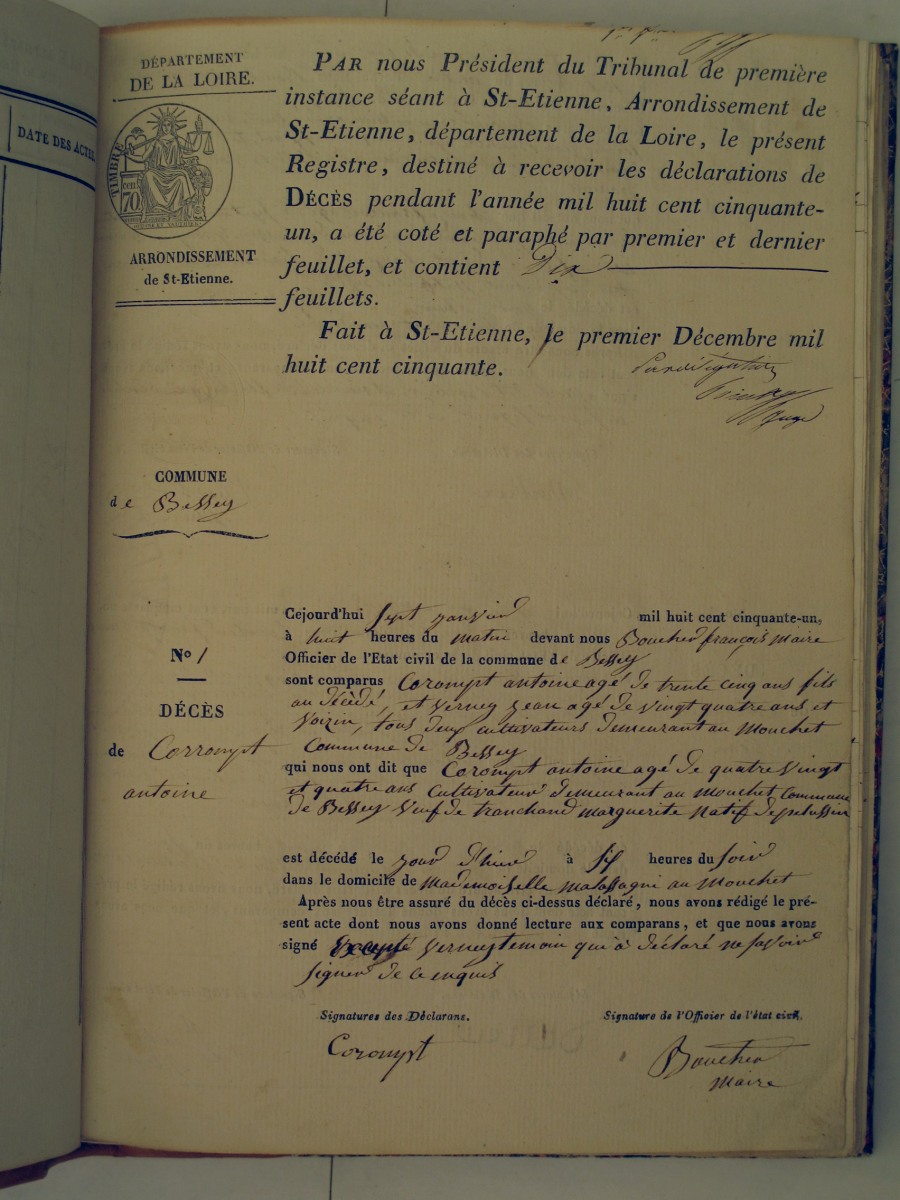 DATE DES ACTES
DÉPARTEMENT
DE LA LOIRE.
TIMBRE
70
ARRONDISSEMENT
de St-Etienne.
PAR nous Président du Tribunal de première
instance séant à St-Etienne, Arrondissement de
St-Etienne, département de la Loire, le présent
Registre, destiné à recevoir les déclarations de
DÉCÈS pendant l'année mil huit cent cinquante-
un, a été coté et paraphé par premier et dernier
feuillet, et contient Dix
feuillets.
Fait à St-Etienne, le premier Décembre mil
huit cent cinquante.
COMMUNE
de Bessey
No 1
DÉCÈS
de Corrompt
antoine
Cejourd'hui sept janvier mil huit cent cinquante-un,
à huit heures du matin devant nous Boucher françois Maire
Officier de l'Etat civil de la commune de Bessey
sont comparus Corompt antoine agé de trente cinq ans fils
au décédé, et Verney jean agé de vingt quatre ans et
Voizin, tous deux cultivateurs demeurant au Mouchet
Commune de Bessey
qui nous ont dit que Corompt antoine agé de quatre vingt
et quatre ans Cultivateur demeurant au Mouchet Commune
de Bessey Veuf de tranchand marguerite Natif de pelussin
est décédé le jour d'hier à six heures du soir
dans le domicile de Mademoiselle Malassagni au Mouchet
Après nous être assuré du décès ci-dessus déclaré, nous avons rédigé le pré-
sent acte dont nous avons donné lecture aux comparans, et que nous avons
signé Excepté Verney temoin qui à déclaré ne savoir
signer de ce enquis
Signatures des Déclarans.
Signature de l'Officier de l'état civil.
Corompt
Boucher
Maire